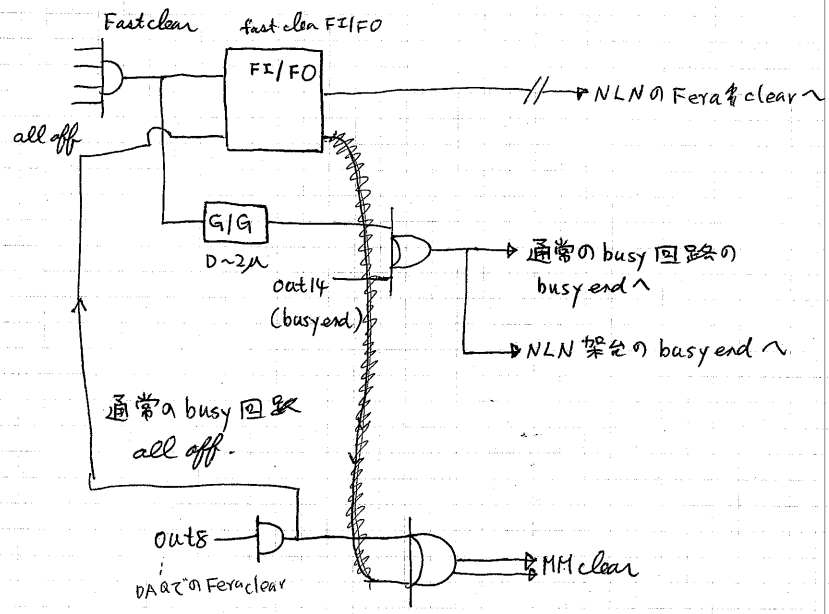 Fastclear
fast clea FI/FO
FI/FO
NLNのFera clearへ
all off
G/G
D~2μ
out14
(busy end)
通常のbusy回路の
busy endへ
NLN架台のbusy endへ
通常のbusy回路
all off.
out8
DAQでのFeraclear
MM clear